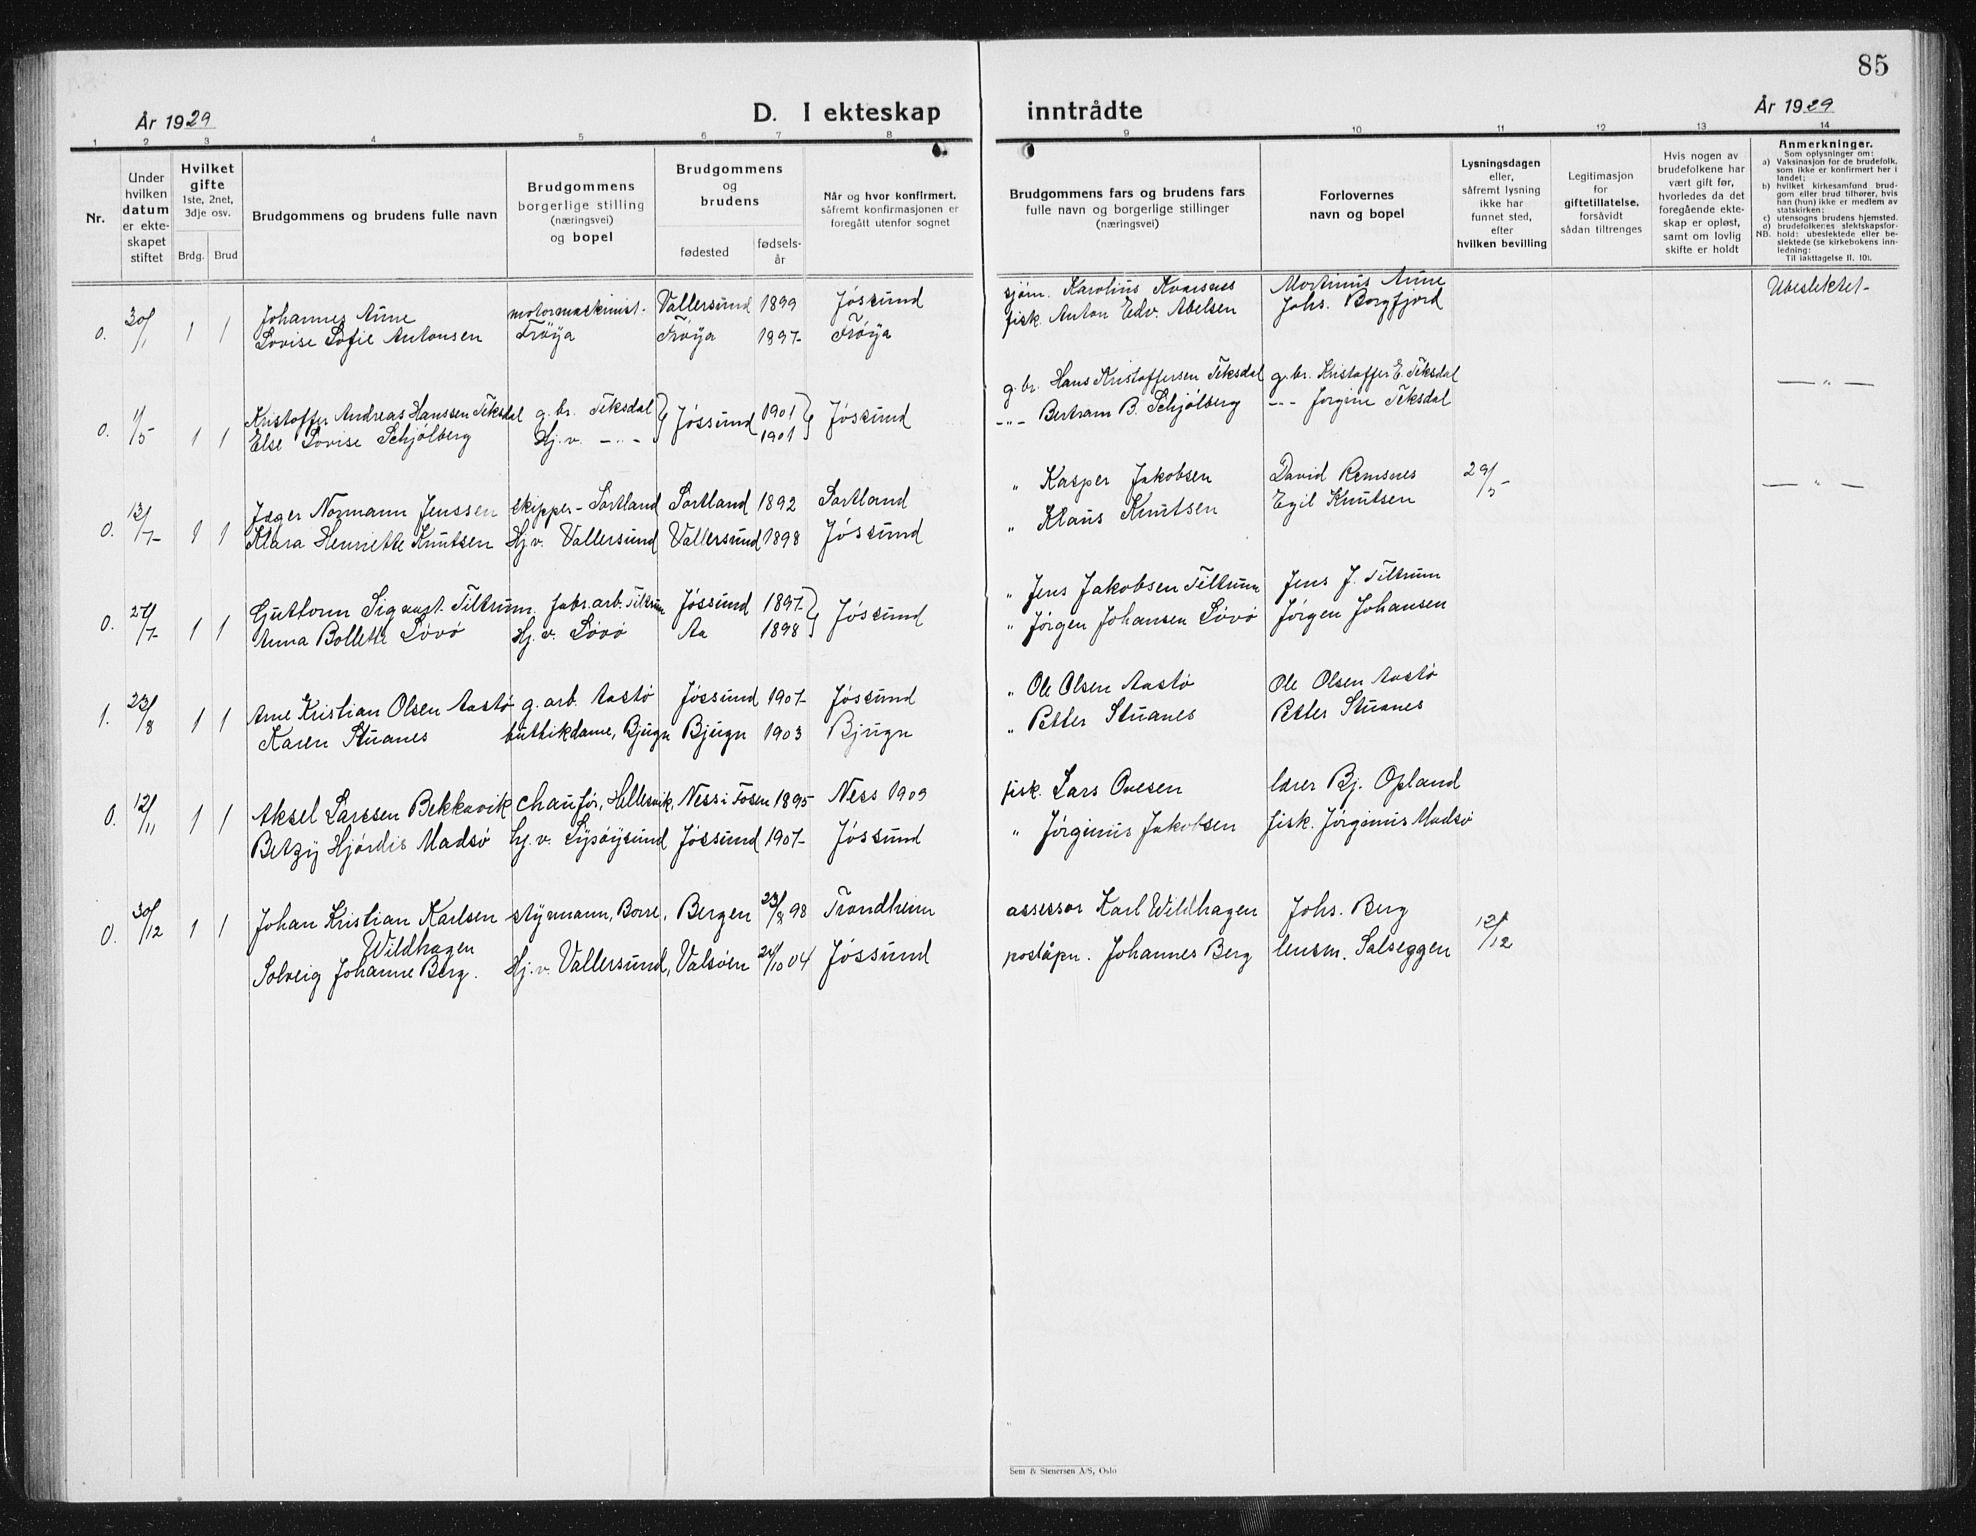 85
År 1929
D. I ekteskap inntrådte
År 1929
1 2 3 4 5 6 7 8 9 10 11 12 13 14
Nr.
Under hvilken datum er ekteskapet stiftet
Hvilket gifte 1ste, 2net, 3dje osv.
Brdg. Brud
Brudgommens og brudens fulle navn
Brudgommens borgerlige stilling (næringsvei) og bopel
Brudgommens og brudens
fødested
fødselsår
Når og hvor konfirmert, såfremt konfirmasjonen er foregått utenfor sognet
Brudgommens fars og brudens fars fulle navn og borgerlige stillinger (næringsvei)
Forlovernes navn og bopel
Lysningsdagen eller, såfremt lysning ikke har funnet sted, efter hvilken bevilling
Legitimasjon for giftetillatelse, forsåvidt sådan tiltrenges
Hvis nogen av brudefolkene har vært gift før, hvorledes da det foregående ekteskap er opløst, samt om lovlig skifte er holdt
Anmerkninger.
Som oplysninger om:
a) Vaksinasjon for de brudefolk, som ikke er konfirmert her i landet;
b) hvilket kirkesamfund brudgom eller brud tilhører, hvis han (hun) ikke er medlem av statskirken;
c) utensogns brudens hjemsted.
d) brudefolkenes slektskapsforhold: ubeslektede eller beslektede (se kirkebokens innledning:
NB. Til iakttagelse II. 10).
0. 30/1 1 1 Johannes Aune motormaskinist. Vallersund 1899 Jóssund sjøm. Karolius Kvarsnes Mortinus Aune Ubeslektet-
Lovise Sofie Antonsen Frøya Frøya 1897 Frøya fisk. Anton Edv. Abelsen Johs. Borgfjord
0. 11/5 1 1 Kristoffer Andreas Hanssen Teksdal g. br. Teksdal Jóssund 1901 Jóssund g. br. Hans Kristoffersen Teksdal g. br. Kristoffer E. Teksdal — " —
Else Lovise Schjølberg Hj. v. — " — 1901 — " — Bertram B. Schjølberg — " — Jørgine Teksdal
0. 13/7 1 1 Jæger Normann Jenssen skipper - Sortland Sortland 1892 Sortland " Kasper Jakobsen David Remsnes 29/5 — " —
Klara Henriette Knutsen Hj. v. Vallersund Vallersund 1898 Jóssund " Klaus Knutsen Egil Knutsen
0. 27/7 1 1 Guttorm Sigvart Tiltrum fabr. arb. Tiltrum Jóssund 1897 Jóssund " Jens Jakobsen Tiltrum Jens J. Tiltrum
Anna Bollette Lóvó Hj. v. Lóvó Aa 1898 " Jørgen Johansen Lóvó Jørgen Johansen
1. 23/8 1 1 Arne Kristian Olsen Aastó g. arb. Aastó Jóssund 1907 Jóssund " Ole Olsen Aastó Ole Olsen Aastó
Karen Stuanes buttikdame, Bjugn Bjugn 1903 Bjugn " Petter Stuanes Petter Stuanes
0. 12/11 1 1 Aksel Larssen Bekkavik chaufør, Hellesvik, Ness i Fosen 1895 Ness 1909 fisk. Lars Ovesen lærer Bj. Opland
Betzy Hjördis Madsø hj. v. Lysøysund Jóssund 1907 Jóssund " Jørginus Jakobsen fisk. Jørginus Madsø
0. 30/12 1 1 Johan Kristian Karlsen styrmann, Borre, Bergen 23/8 98 Trondheim assessor Karl Wildhagen Johs. Berg 12/12
Wildhagen
Solveig Johanne Berg. Hj. v. Vallersund, Valsøen 24/10 04 Jóssund poståpn. Johannes Berg lensm. Salseggen
Sem & Stenersen A/S, Oslo